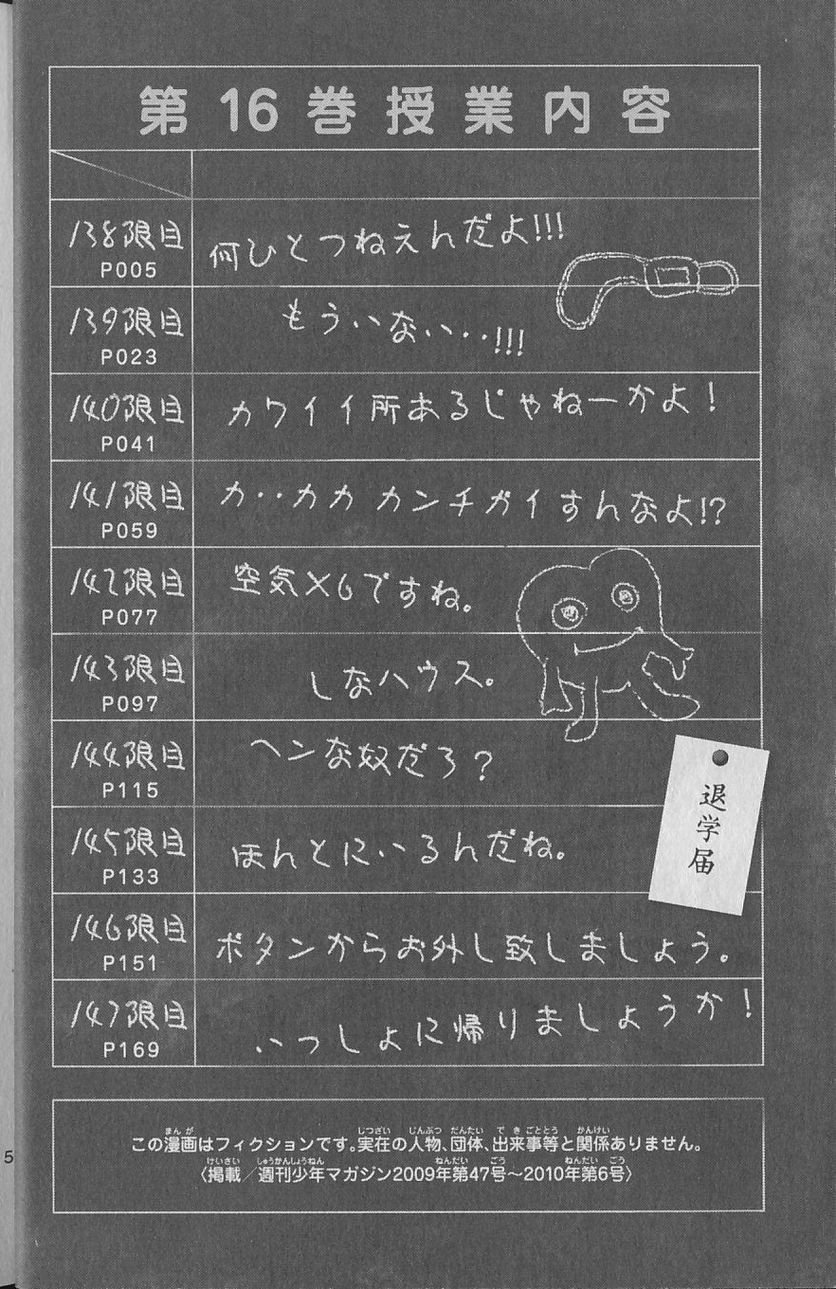 第16巻授業内容
138限目
P005
何ひとつねえんだよ!!!
139限目
P023
もういない・・!!!
140限目
P041
カワイイ所あるじゃねーかよ！
141限目
P059
カ・・カカ カンチガイすんなよ!?
142限目
P077
空気×6ですね。
143限目
P097
しなハウス。
144限目
P115
ヘンな奴だろ？
退学届
145限目
P133
ほんとにいるんだね。
146限目
P151
ボタンからお外し致しましょう。
147限目
P169
いっしょに帰りましょうか！
まんが じつざい じんぶつ だんたい できごととう かんけい
この漫画はフィクションです。実在の人物、団体、出来事等と関係ありません。
けいさい しゅうかんしょうねん ねんだい ごう ねんだい ごう
〈掲載／週刊少年マガジン2009年第47号〜2010年第6号〉
5